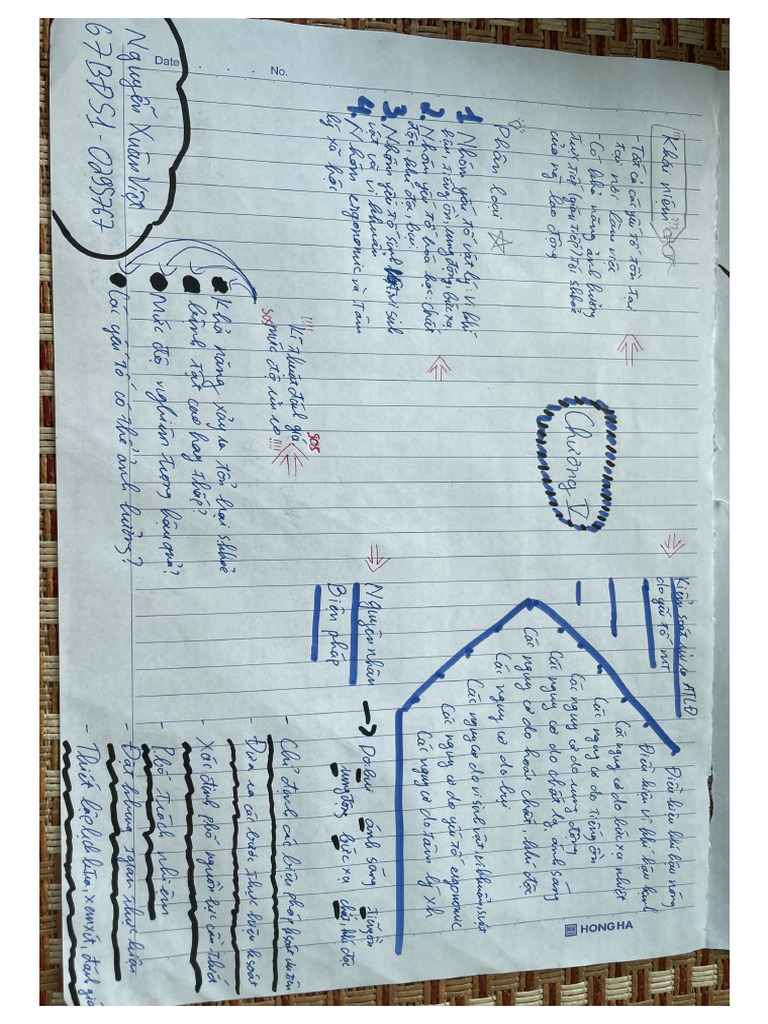 Date
No.
Nguyễn Xuân Việt
67BDS1 - 0295767
Khái niệm???
- Tất cả các yếu tố tồn tại
tại nơi làm việc
- Có khả năng ảnh hưởng
trực tiếp (gián tiếp) tới skhoẻ
của ng lao động
Phân loại
1. Nhóm yếu tố vật lý: vi khí
hậu, tiếng ồn, rung động, bức xạ
2. Nhóm yếu tố hoá học: chất
độc, khí độc, bụi
3. Nhóm yếu tố sinh vi sinh
vật và vi khuẩn
4. Nhóm ergonomic và tâm
lý xã hội
Chương V
!!!! Kĩ thuật đánh giá SOS
SOS mức độ rủi ro !!!!
Khả năng xảy ra tổn hại skhoẻ
bệnh tật cao hay thấp?
Mức độ nghiêm trọng hậu quả?
Các yếu tố có thể ảnh hưởng?
Kiểm soát rủi ro ATLĐ
do yếu tố MT
Điều kiện khí hậu nóng
Điều kiện vi khí hậu lạnh
Các nguy cơ do bức xạ nhiệt
Các nguy cơ do tiếng ồn
Các nguy cơ do rung động
Các nguy cơ do chất lg ánh sáng
Các nguy cơ do hoá chất, khí độc
Các nguy cơ do bụi
Các nguy cơ do vi sinh vật vi khuẩn
Các nguy cơ do yếu tố ergonomic
Các nguy cơ do tâm lý xh
Nguyên nhân
Do bụi ánh sáng tiếng ồn
rung động bức xạ chất khí độc
Biện pháp
- Chỉ định các biện pháp ksoát
- Đưa ra các bước thực hiện ksoát
- Xác định phó nguồn lực cần thiết
- Phổ trách nhiệm
- Đặt khung tgian thực hiện
- Thiết lập lịch ktra, xem xét, đánh giá
HONG HA